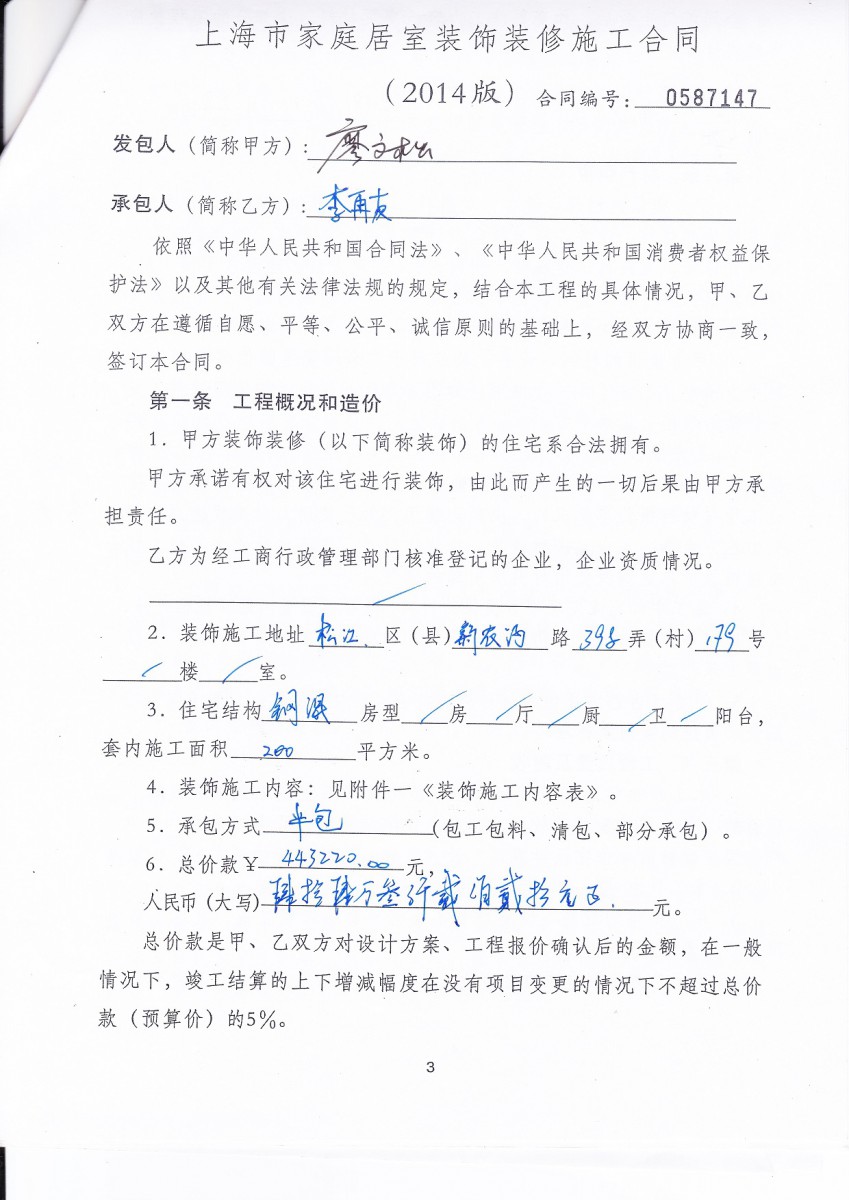 上海市家庭居室装饰装修施工合同
（2014版） 合同编号： 0587147
发包人（简称甲方）：廖文松
承包人（简称乙方）：李再友
依照《中华人民共和国合同法》、《中华人民共和国消费者权益保
护法》以及其他有关法律法规的规定，结合本工程的具体情况，甲、乙
双方在遵循自愿、平等、公平、诚信原则的基础上， 经双方协商一致，
签订本合同。
第一条 工程概况和造价
1．甲方装饰装修（以下简称装饰）的住宅系合法拥有。
甲方承诺有权对该住宅进行装饰，由此而产生的一切后果由甲方承
担责任。
乙方为经工商行政管理部门核准登记的企业，企业资质情况。
/
2．装饰施工地址 松江 区（县） 路 398 弄（村） 179 号
/ 楼 / 室。
3．住宅结构 钢混 房型 / 房 / 厅 / 厨 / 卫 / 阳台，
套内施工面积 200 平方米。
4．装饰施工内容：见附件一《装饰施工内容表》。
5．承包方式 半包 (包工包料、清包、部分承包）。
6．总价款￥ 443220.00 元，
人民币（大写) 肆拾肆万叁仟贰佰贰拾元正. 元。
总价款是甲、乙双方对设计方案、工程报价确认后的金额，在一般
情况下，竣工结算的上下增减幅度在没有项目变更的情况下不超过总价
款（预算价）的5%。
3